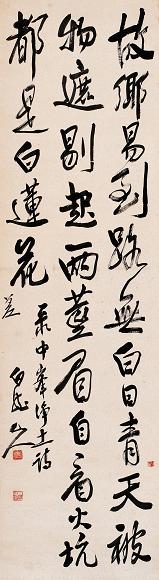 故鄉易到路無白日青天被
物遮剔起兩莖眉自看火坑
都是白蓮花
中峯淨土詩
差